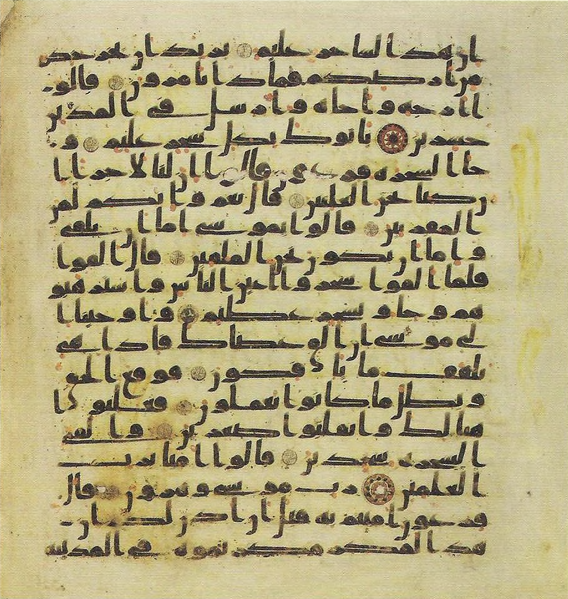 ان هذا لسحر عليم يريد ان يخرجكم
من ارضكم فماذا تامرون قالو
ا ارجه واخاه وارسل في المداين
حشرين ياتوك بكل سحر عليم و
جا السحرة فرعون قالوا ان لنا لاجرا ا
ن كنا نحن الغلبين قال نعم وانكم لمن
المقربين قالوا يموسى اما ان تلقي
واما ان نكون نحن الملقين قال القوا
فلما القوا سحروا اعين الناس واسترهبو
هم وجاو بسحر عظيم واوحينا ا
لى موسى ان الق عصاك فاذا هي
تلقف ما يافكون فوقع الحق
وبطل ما كانوا يعملون فغلبوا ه‍
نالك وانقلبوا صغرين والقي
السحرة سجدين قالوا امنا برب
العلمين رب موسى وهرون قال
فرعون امنتم به قبل ان اذن لكم ان
هذا لمكر مكرتموه في المدينة